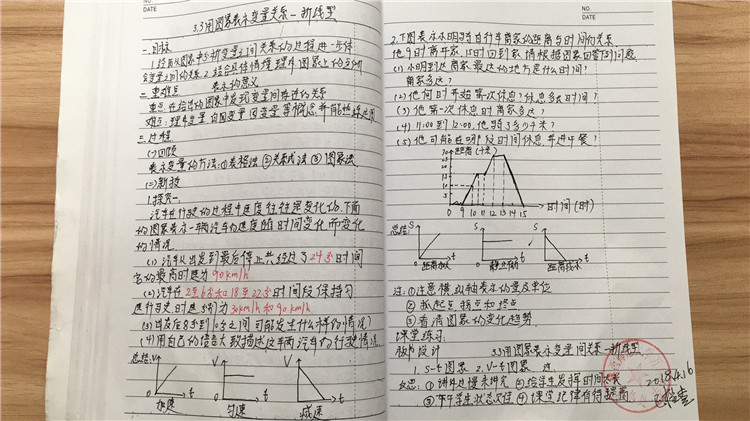 NO.
DATE
3.3用图象表示变量关系—折线型
一.目标
1.经历从图象中分析变量之间关系的过程进一步体
会变量之间的关系 2.结合具体情境理解图象上的点所
表示的意义
二.重难点
重点:在给定的图象中发现变量间存在的关系
难点:理解变量 自变量 因变量等概念,并能
三.过程
(一)回顾
表示变量的方法:①表格法 ②关系式法 ③图象法
(二)新授
1.探究一
汽车在行驶的过程中速度往往是变化的,下面
的图象表示一辆汽车的速度随时间变化而变化
的情况
(1)汽车从出发到最后停止共经过了24分时间
它的最高时速为90km/h
(2)汽车在2至6分和18至22分时间段保持匀
速行驶时速分别为30km/h和90km/h
(3)出发后8分到10分之间可能发生什么样的情况?
(4)用自己的语言大致描述这辆汽车的行驶情况.
总结: V
V
V
0
t
0
t
0
t
加速
匀速
减速
NO.
DATE
2.下图表示小明骑自行车离家的距离与时间的关系
他9时离开家,15时回到家,请根据图象回答下列问题
(1)小明到达离家最远的地方是什么时间?
离家多远?
(2)他何时开始第一次休息?休息多长时间?
(3)他第一次休息时离家多远?
(4)11:00到12:00他骑了多少千米?
(5)他可能在哪段时间休息,并进午餐?
距离(千米)
0 9 10 11 12 13 14 15
时间(时)
总结: S
S
S
0
t
0
t
0
t
距离增大
静止不动
距离减小
注:①注意横纵轴表示的量及单位
②抓起点 拐点和终点
③看清图象的变化趋势
课堂练习:
板书设计
3.3用图象表示变量间关系—折线型
1. S-t图象 2. V-t图象
反思:①讲得过慢未讲完 ②给学生发挥时间太长
③下午学生状态欠佳 ④课堂纪律有待提高
2018.4.16
已检查